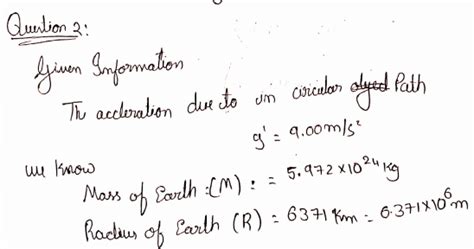 Question 2:
Given Information
Th accleration due to on circular Path
g' = 9.00 m/s²
we know
Mass of Earth :(M) : = 5.972 × 10²⁴ kg
Radius of Earth (R) = 6371 Km = 6.371 × 10⁶ m